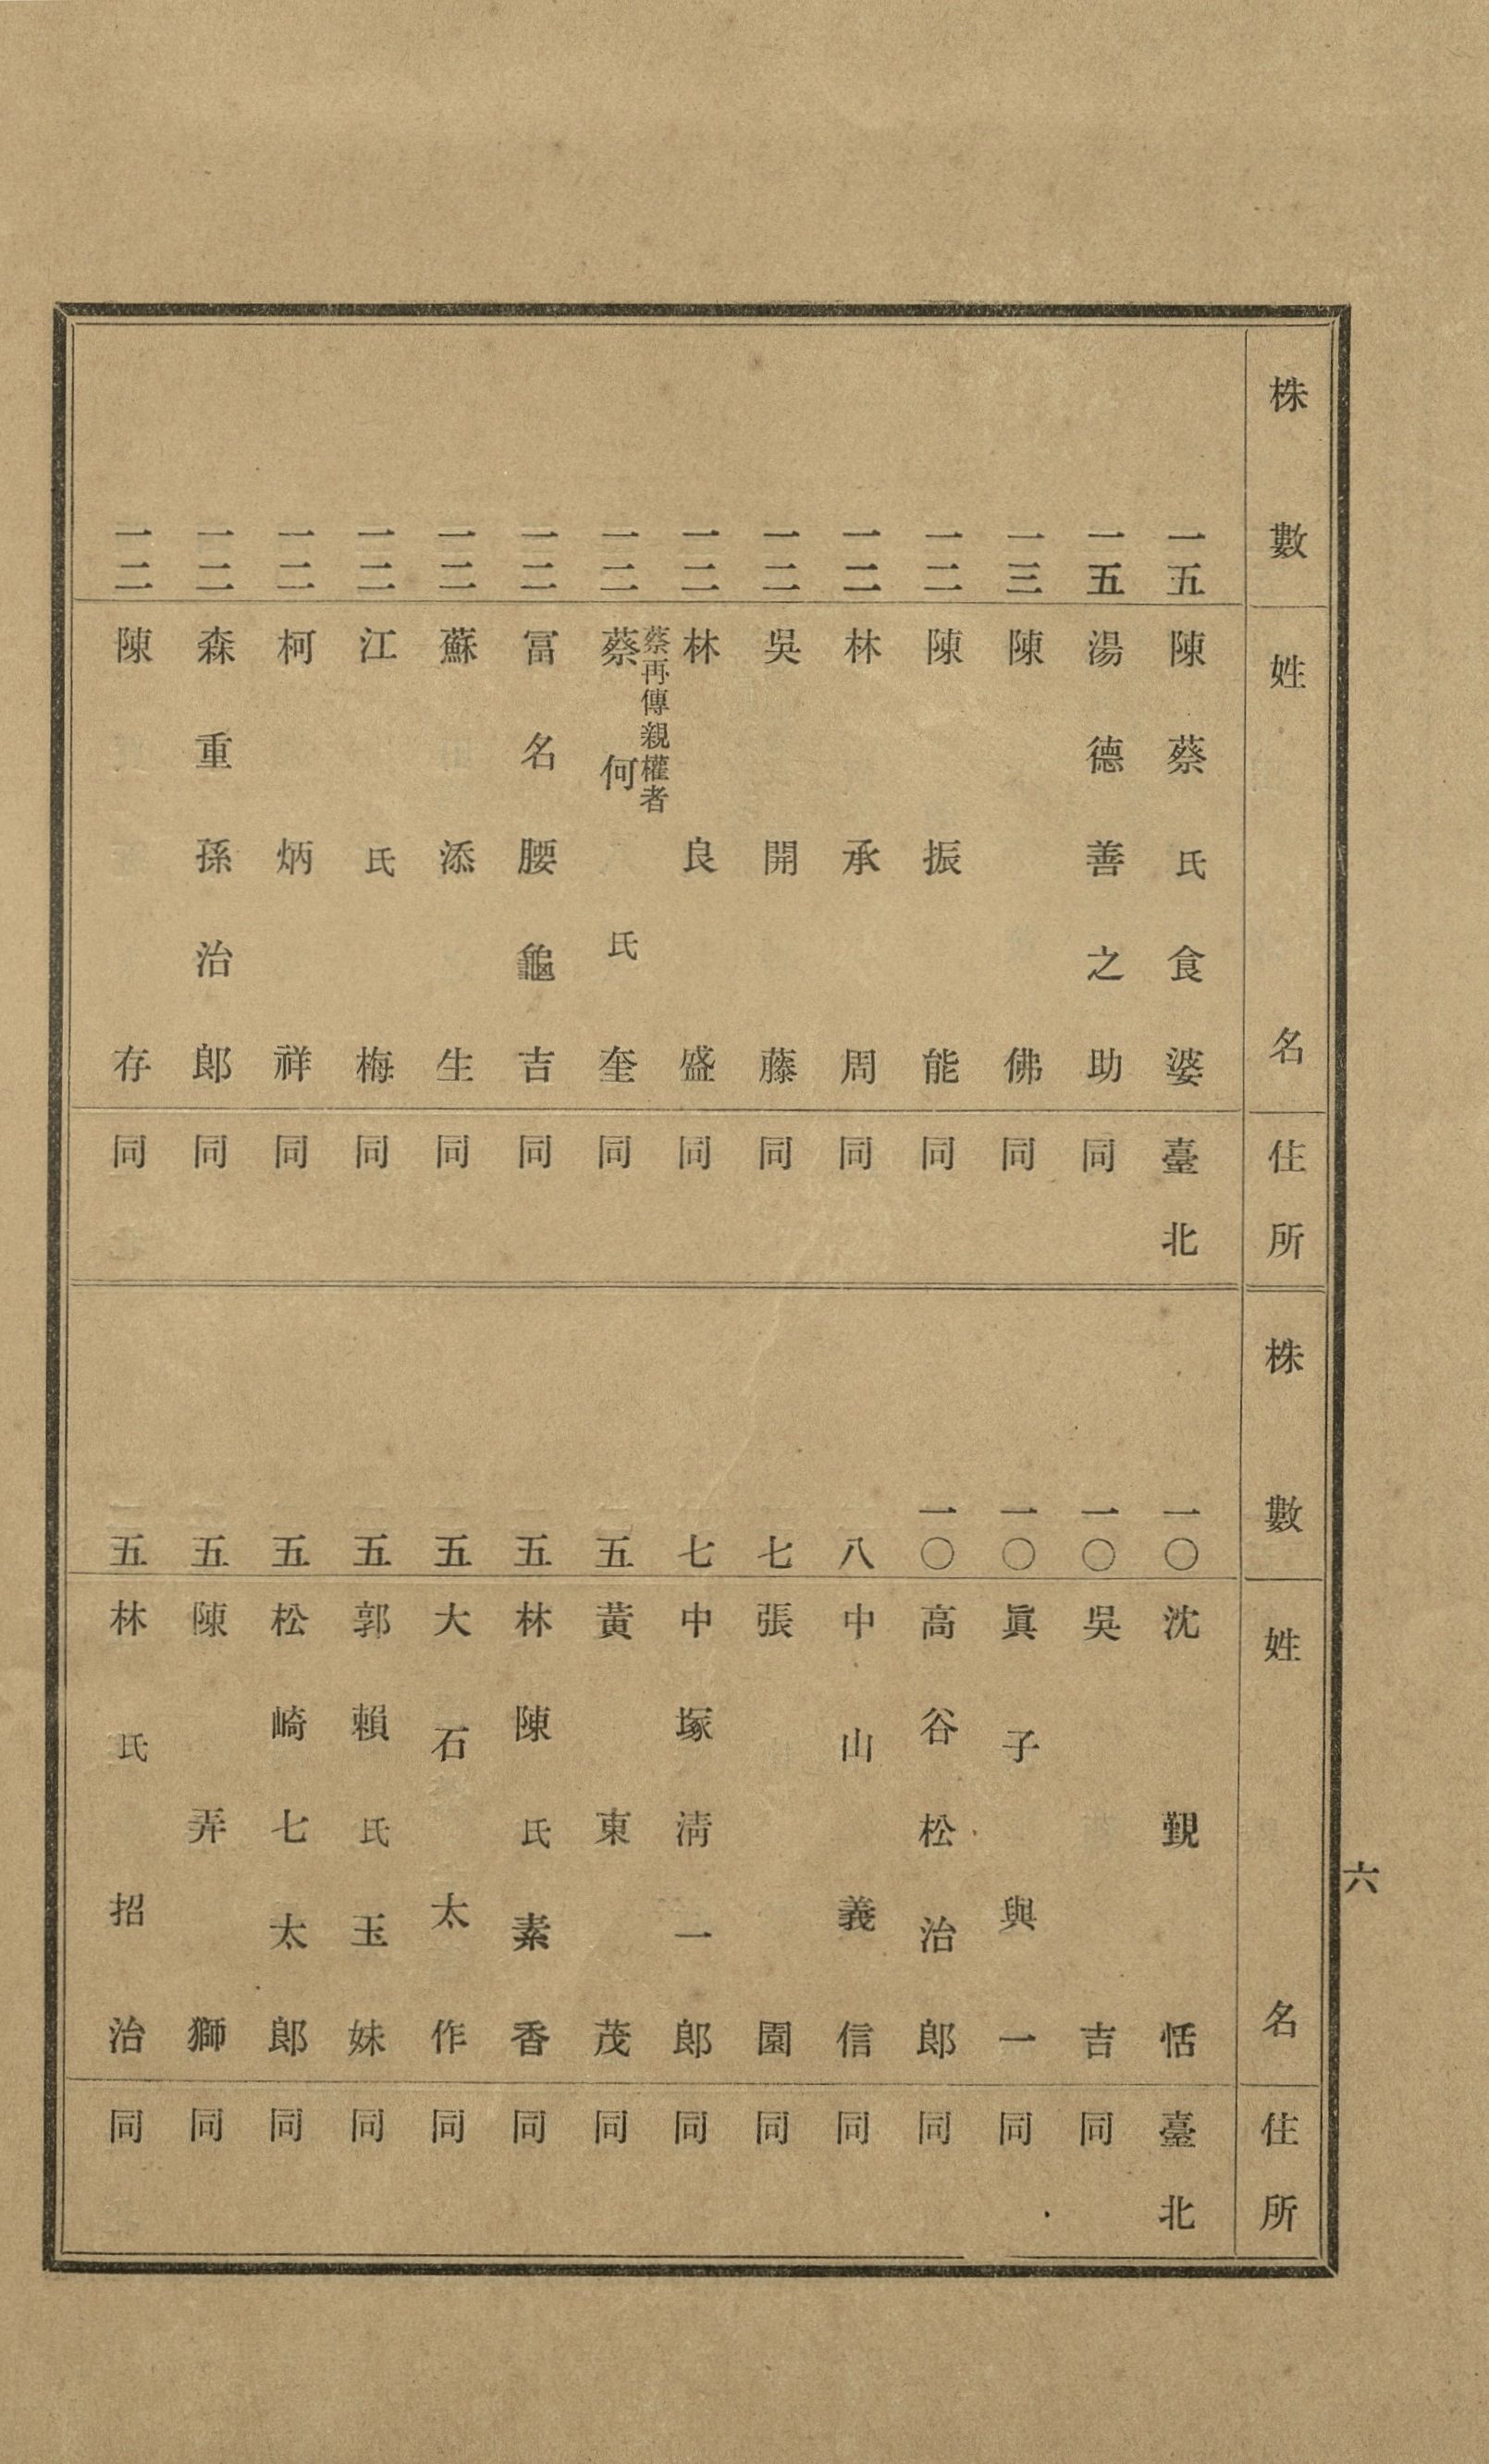 株數 姓名 住所
一五 陳蔡氏食婆 臺北
一五 湯德善之助 同
一三 陳佛 同
一二 陳振能 同
一二 林承周 同
一二 吳開藤 同
一二 林良盛 同
一二 蔡再傳親權者 蔡何氏奎 同
一二 冨名腰龜吉 同
一二 蘇添生 同
一二 江氏梅 同
一二 柯炳祥 同
一二 森重孫治郎 同
一二 陳存 同
株數 姓名 住所
一〇 沈覲恬 臺北
一〇 吳吉 同
一〇 眞子與一 同
一〇 高谷松治郎 同
八 中山義信 同
七 張園 同
七 中塚淸一郎 同
五 黃東茂 同
五 林陳氏素香 同
五 大石太作 同
五 郭賴氏玉妹 同
五 松崎七太郎 同
五 陳弄獅 同
五 林氏招治 同
六